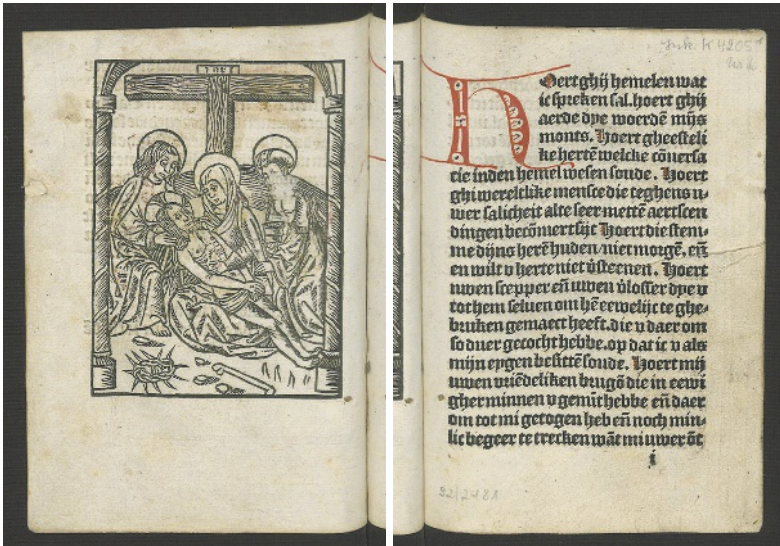 Hoert ghij hemelen wat
ic spreken sal. hoert ghij
aerde dye woerdē mijs
monts. Hoert gheesteli
ke hertē welcke cōuersa
cie inden hemel wesen soude. Hoert
ghi wereltlike mensce die teghens u-
wer salicheit alte seer mettē aertscen
dingen becōmert sijt Hoert die stem-
me dijns herē huden/niet morgē, eñ
en wilt v herte niet v̄steenen. Hoert
uwen scepper eñ uwen v̄losser dye v
tot hem seluen om hē eewelijc te ghe-
bruken gemaect heeft. die v daer om
so duer gecocht hebbe. op dat ic v als
mijn eygen besittē soude. Hoert mij
uwen vriēdeliken brugō die in eewi
gher minnen v gemīt hebbe eñ daer
om tot mi getogen heb eñ noch min-
lic begeer te trecken wāt mi uwer ōt
i
Ink. K 4205
92/2481